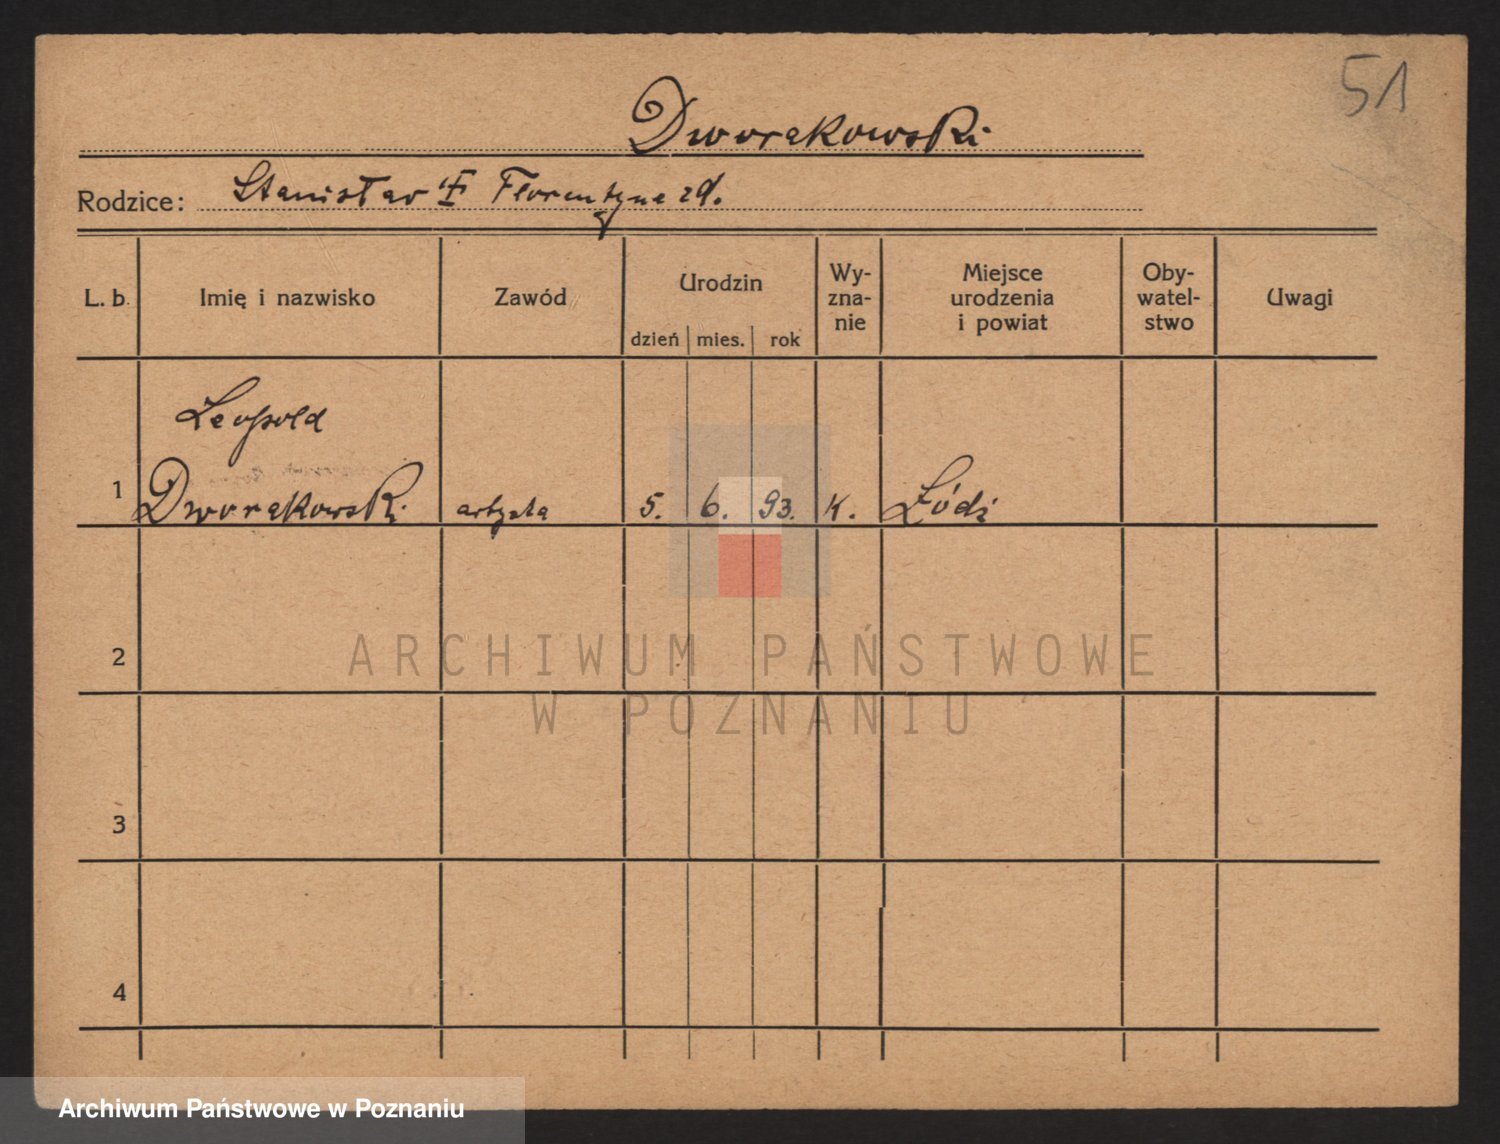 51
Dworakowski
Rodzice: Stanisław Florentyna zd.
L. b. Imię i nazwisko Zawód Urodzin Wy-zna-nie Miejsce urodzenia i powiat Oby-watel-stwo Uwagi
dzień mies. rok
Leopold
1 Dworakowski artysta 5. 6. 93. k. Łódź
2
ARCHIWUM PAŃSTWOWE
W POZNANIU
3
4
Archiwum Państwowe w Poznaniu